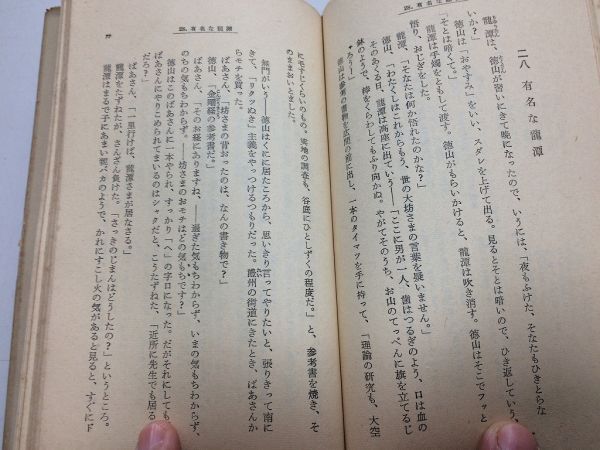 28. 有名な龍潭
二八 有名な龍潭
龍潭は、徳山が習いにきて晩になったので、いうには、「夜もふけた、そなたもひきとらな
いか？」 徳山は「おやすみ」をいい、スダレを上げて出る。見るとそとは暗いので、ひき返していう、
「そとは暗くて。」
龍潭は手燭をともして渡す。徳山がもらいかけると、龍潭は吹き消す。徳山はそこでフッと
悟り、おじぎをした。
龍潭、「そなたは何か悟れたのかな？」
徳山、「わたくしはこれからもう、世の大坊さまの言葉を疑いません。」
そのあくる日、龍潭は高座に出ていう――「ここに男が一人、歯はつるぎのよう、口は血の
鉢のようで、棒をくらわしてもふり向かぬ。やがてそのうち、お山のてっぺんに旗を立てるじ
ゃろう！」
徳山は参考の書物を広間の前に出し、一本のタイマツを手に持って、「理論の研究も、大空
28. 有名な龍潭
に毛すじくらいのもの。実地の調査も、谷底にひとしずくの程度だ。」と、参考書を焼き、そ
のままおいとました。
無門いう――徳山はくにに居たころから、思いきり言ってやりたいと、張りきって南に
きて、「リクツぬき」主義をやっつけるつもりだった。澧州の街道にきたとき、ばあさんか
らモチを買った。
ばあさん、「坊さまの背おったのは、なんの書き物で？」
徳山、「金剛経の参考書だ。」
ばあさん、「そのお経にありますね、――過ぎた気もちわからず、いまの気もちわからず、
さきの気もちわからず。――坊さまのおモチはどの気もちです？」
徳山はこのばあさんに一本やられ、すっかり「へ」の字口になった。だがそれにしても、
ばあさんにやりこめられてまいるのはシャクだと、こうたずねた、「近所に先生でも居る
だろう？」
ばあさん、「一里行けば、龍潭さまが居なさる。」
龍潭をたずねたが、さんざん負けた。「さっきのじまんはどうしたの？」というところ。
龍潭はまるで子にあまい親バカのようで、かれにすこし火の気があると見ると、すぐにド
77